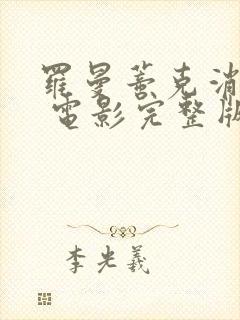 羅曼蒂克消
電影完整版
李光羲